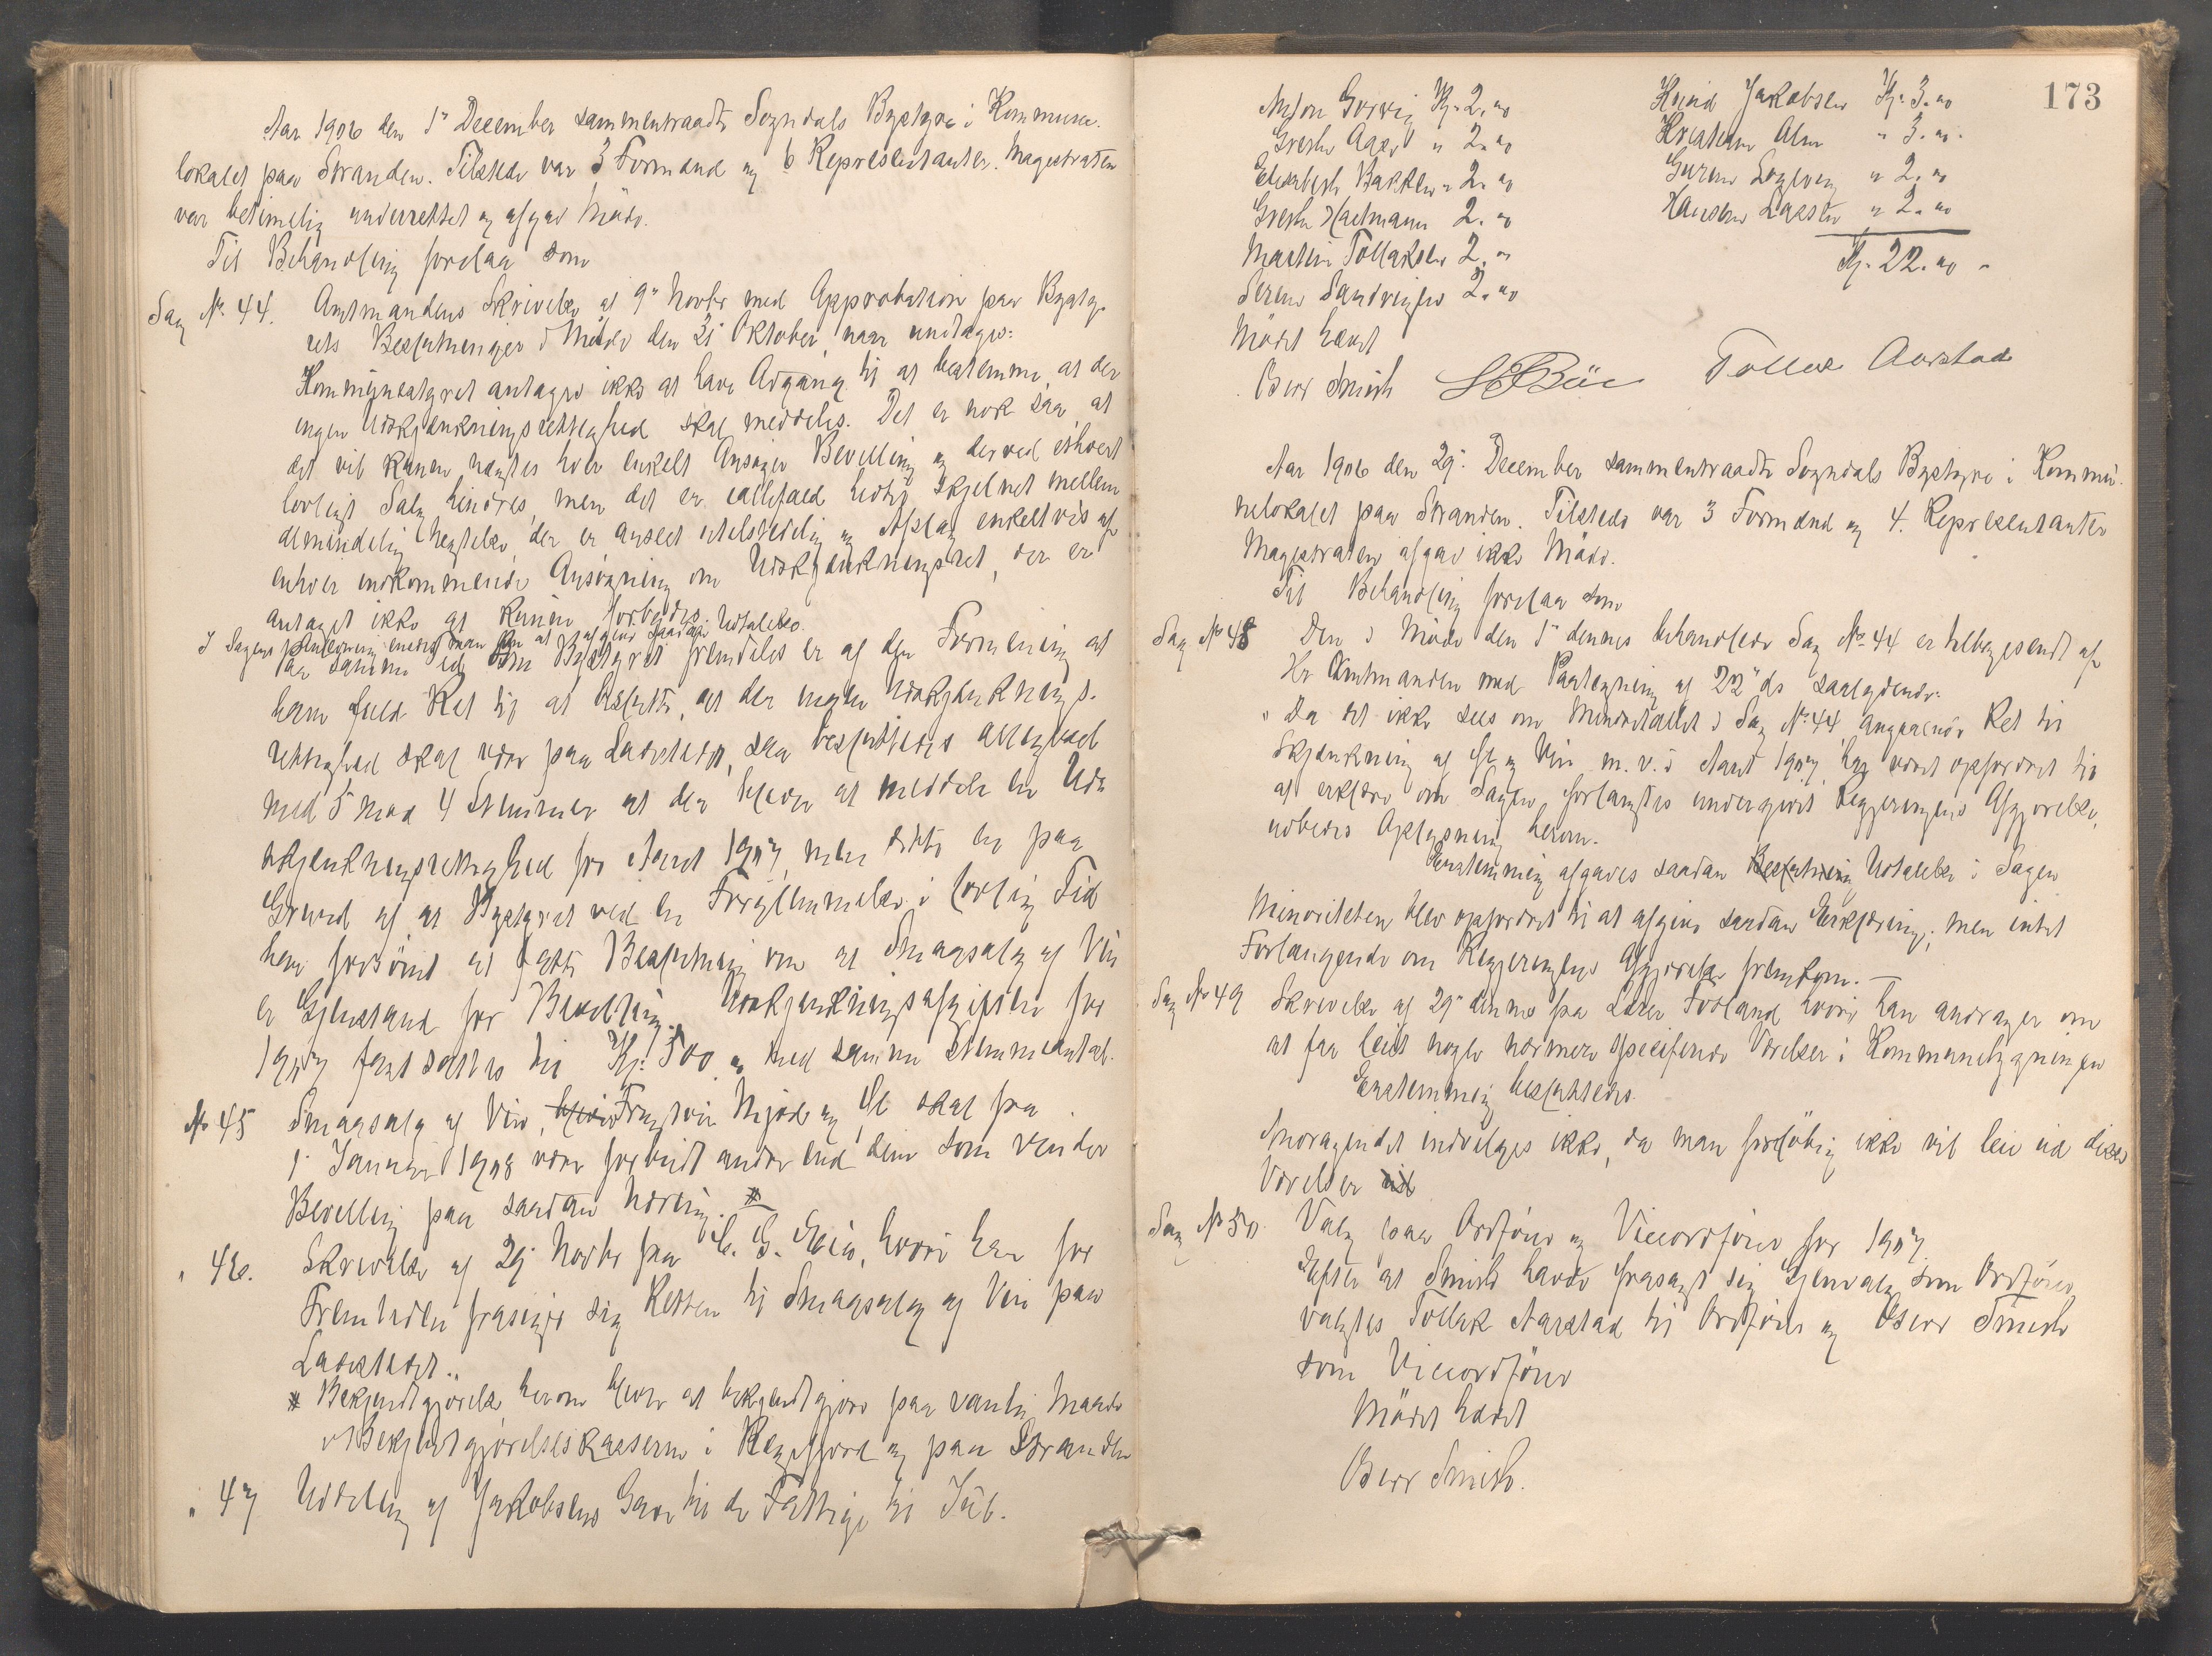 Aar 1906 den 1ste December sammentraadte Sogndals Bystyre i Kommune-
lokalet paa Stranden. Tilstede var 3 Formænd og 6 Repræsentanter. Magistraten
var betimelig underrettet og afgav Møde.
Til Behandling forelaa som
Sag No. 44. Amtmandens Skrivelse af 9de Novbr med Approbation paa Bysty-
rets Beslutninger i Møde den 31 Oktober, naar undtages:
Kommunestyret antages ikke at have Adgang til at bestemme, at der
ingen Udskjænkningsrettighed skal meddeles. Det er nok saa, at
det vil kunne nægtes hver enkelt Ansøger Bevilling og derved ethvert
lovligt Salg hindres, men det er ialfald hidtil skjelnet mellem
almindelig Nægtelse, der er anseet utilstedelig og Afslag enkeltvis af
enhver indkommende Ansøgning om Udskjænkningsret, der er
antaget ikke at kunne forbydes.
I Sagens Anledning enedes man om at afgive saadan Udtalelse.
Bystyret fremdeles er af den Formening at
have fuld Ret til at beslutte, at der ingen Udskjænknings-
rettighed skal være paa Ladestedet, saa besluttedes alligevel
med 5 mod 4 Stemmer at der bliver at meddele en Ud-
skjænkningsrettighed for Aaret 1907, men dette er paa
Grund af at Bystyret ved en Forglemmelse i lovlig Tid
have forsømt at fatte Beslutning om at Smaasalg af Vin
er Gjenstand for Bevilling. Udskjænkningsafgiften for
1907 fastsattes til Kr. 500 og med samme Stemmeantal.
No 45 Smaasalg af Vin, Frugtvin Mjød og Øl skal fra
1. Januar 1908 være forbudt andre end dem som vender
Bevilling paa saadan Næring. *
" 46. Skrivelse af 29 Novbr fra C. G. Eie, hvori han for
Fremtiden frasiger sig Retten til Smaasalg af Vin paa
Ladestedet.
* Bekjendtgjørelse herom bliver at bekjendtgjøre paa vanlig Maade
i Bekjendtgjørelseskasserne i Rægefjord og paa Stranden
" 47 Uddeling af Jakobsens Gave til de Fattige til Jul.
173
Kr. 2.00
Grethe Aase " 2.00
Elisabeth Bakken " 2.00
Grethe Hartmann 2.00
Martin Tollaksen 2.00
Søren Sandvigen 2.00
Jakobsen Kr. 3.00
Kristian Alm " 3.00
" 2.00
" 2.00
Kr. 22.00
Mødet hævet
Oscar Smith Tollak Aarstad
Aar 1906 den 29de December sammentraadte Sogndals Bystyre i Kommu-
nelokalet paa Stranden. Tilstede var 3 Formænd og 4 Repræsentanter
Magistraten afgav ikke Møde.
Til Behandling forelaa som
Sag No 48 Den i Møde den 1ste dennes behandlede Sag No 44 er tilbagesendt af
Hr Amtmanden med Paategning af 22de ds saalydende:
"Da det ikke sees om Mindretallet i Sag No 44 angaaende Ret til
Skjænkning af Øl og Vin m. v. i Aaret 1907, har været opfordret til
at erklære om Sagen forlangtes undergivet Regjeringens Afgjørelse,
udbedes Oplysning herom.
Enstemmig afgaves saadan Beslutning Udtalelse i Sagen
Minoriteten blev opfordret til at afgive saadan Erklæring; men intet
Forlangende om Regjeringens Afgjørelse fremkom. —
Sag No 49 Skrivelse af 29de dennes fra Færland hvori han andrager om
at faa leiet nogle nærmere specificerede Værelser i Kommunebygningen
Enstemmig besluttedes.
Andragendet indvilges ikke, da man foreløbig ikke vil leie ud disse
Værelser ud
Sag No 50. Valg paa Ordfører og Viceordfører for 1907.
Efter at Smith havde frasagt sig Gjenvalg som Ordfører,
valgtes Tollak Aarstad til Ordfører og Oscar Smith
som Viceordfører
Mødet hævet
Oscar Smith.